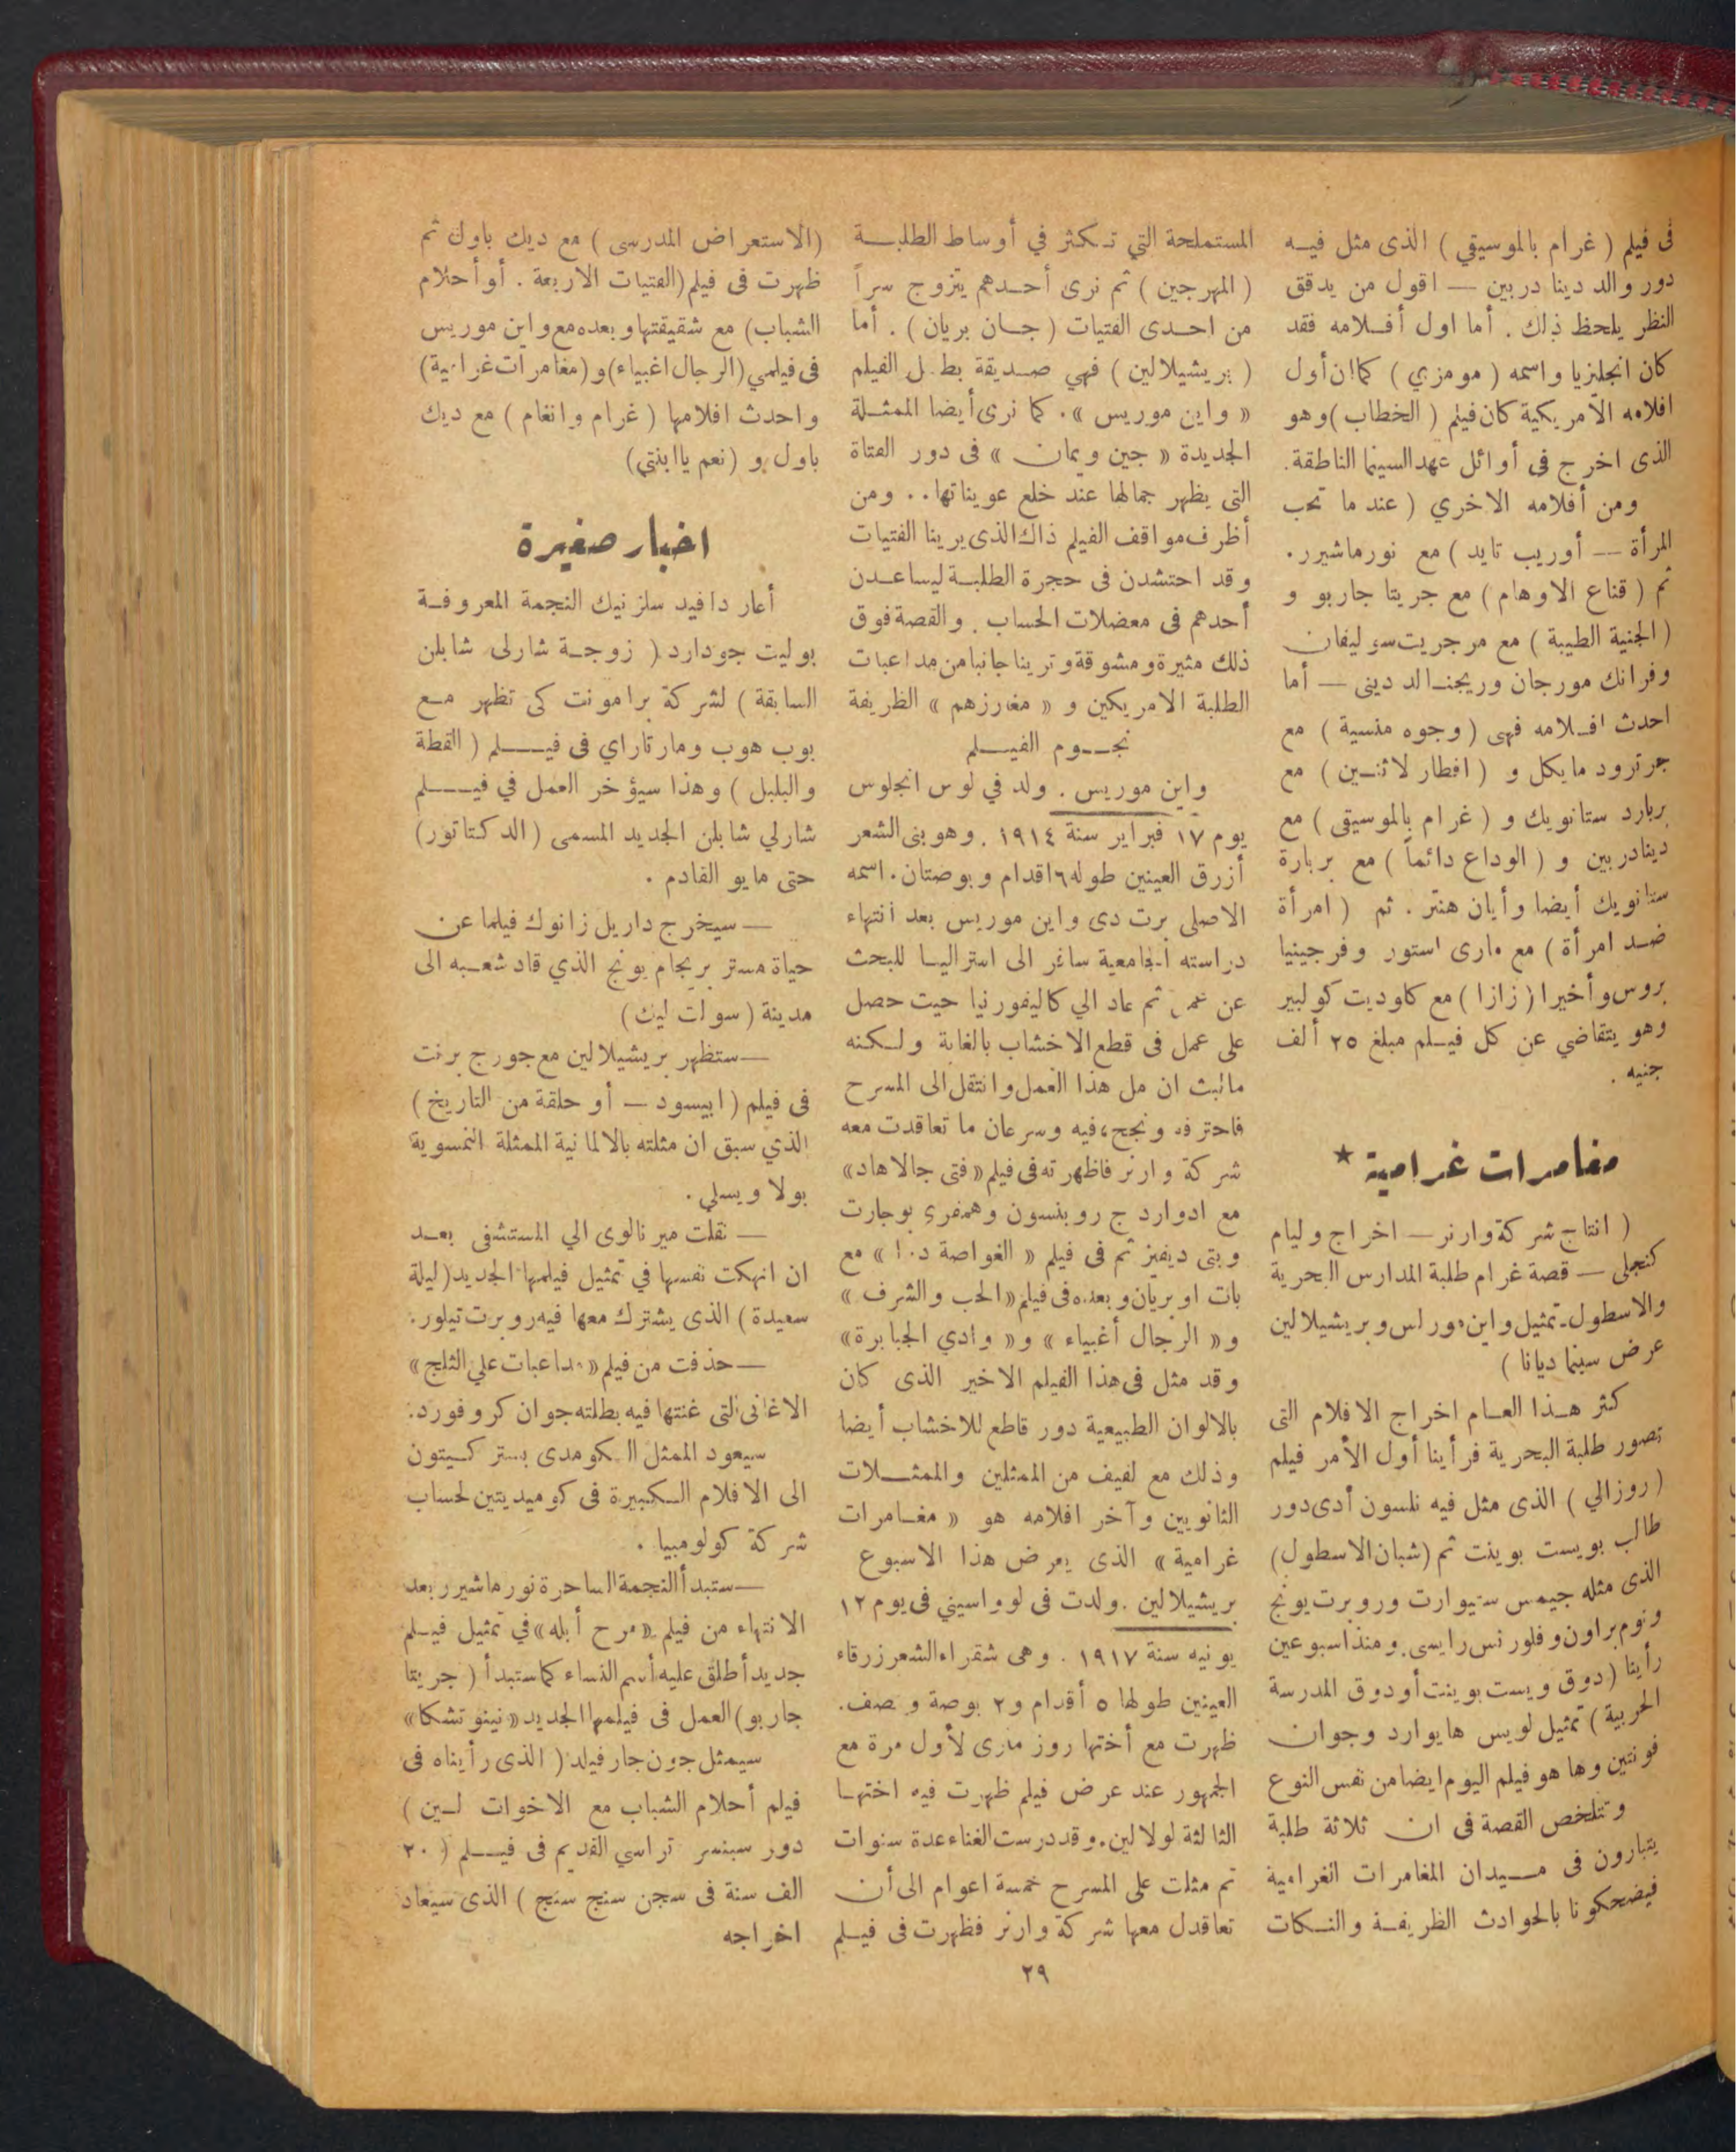 فى فيلم ( غرام بالموسيقي ) الذى مثل فيه
دور والد دينا دربين — اقول من يدقق
النظر يلحظ ذلك . أما اول أفلامه فقد
كان انجليزيا واسمه ( مومزي ) كما ان أول
افلامه الأمريكية كان فيلم ( الخطاب ) وهو
الذى اخرج فى أوائل عهد السينما الناطقة .
ومن أفلامه الاخري ( عند ما تحب
المرأة — أوريب تايد ) مع نورماشيرر .
ثم ( قناع الاوهام ) مع جريتا جاربو و
( الجنية الطيبة ) مع مرجريت سوليفان
وفرانك مورجان وريجنالد دينى — أما
احدث افلامه فهى ( وجوه منسية ) مع
جرترود مايكل و ( افطار لاثنين ) مع
بربارد ستانويك و ( غرام بالموسيقى ) مع
دينادربين و ( الوداع دائماً ) مع بربارة
ستانويك أيضا وأيان هنتر . ثم ( امرأة
ضد امرأة ) مع مارى استور وفرجينيا
بروس وأخيرا ( زازا ) مع كاوديت كولبير
وهو يتقاضي عن كل فيلم مبلغ ٢٥ ألف
جنيه .
مغامرات غرامية ★
( انتاج شركة وارنر — اخراج وليام
كنجلى — قصة غرام طلبة المدارس البحرية
والاسطول - تمثيل واين مورلس وبريشيلالين
عرض سينما ديانا )
كثر هذا العام اخراج الافلام التى
تصور طلبة البحرية فرأينا أول الأمر فيلم
( روزالي ) الذى مثل فيه نلسون أدى دور
طالب بويست بوينت ثم (شبان الاسطول)
الذى مثله جيمس ستيوارت وروبرت يونج
ونوم براون وفلورنس رايسى . ومنذ اسبوعين
رأينا ( دوق ويست بوينت أو دوق المدرسة
الحربية ) تمثيل لويس هايوارد وجوان
فونتين وها هو فيلم اليوم ايضا من نفس النوع
وتتلخص القصة فى ان ثلاثة طلبة
يتبارون فى ميدان المغامرات الغرامية
فيضحكونا بالحوادث الظريفة والنكات
المستملحة التي تكثر في أوساط الطلبة
( المهرجين ) ثم نرى أحدهم يتزوج سراً
من احدى الفتيات ( جان بريان ) . أما
( بريشيلالين ) فهي صديقة بطل الفيلم
« واين موريس » . كما نرى أيضا الممثلة
الجديدة « جين ويمان » فى دور الفتاة
التى يظهر جمالها عند خلع عويناتها .. ومن
أظرف مواقف الفيلم ذاك الذى يرينا الفتيات
وقد احتشدن فى حجرة الطلبة ليساعدن
أحدهم فى معضلات الحساب . والقصة فوق
ذلك مثيرة ومشوقة وترينا جانبا من مداعبات
الطلبة الامريكين و « مغارزهم » الظريفة
نجوم الفيلم
واين موريس . ولد في لوس انجلوس
يوم ١٧ فبراير سنة ١٩١٤ . وهو بنى الشعر
أزرق العينين طوله ٦ اقدام وبوصتان . اسمه
الاصلى برت دى واين موريس بعد انتهاء
دراسته الجامعية سافر الى استراليا للبحث
عن عمل ثم عاد الي كاليفورنيا حيت حصل
على عمل فى قطع الاخشاب بالغابة ولكنه
مالبث ان مل هذا العمل وانتقل الى المسرح
فاحترفه ونجح فيه وسرعان ما تعاقدت معه
شركة وارنر فاظهرته فى فيلم « فتى جالاهاد »
مع ادوارد ج روبنسون وهمفري بوجارت
وبتى ديفيز ثم فى فيلم « الغواصة د.١ » مع
بات اوبريان وبعده فى فيلم « الحب والشرف »
و « الرجال أغبياء » و « وادي الجبابرة »
وقد مثل فى هذا الفيلم الاخير الذى كان
بالالوان الطبيعية دور قاطع للاخشاب أيضا
وذلك مع لفيف من الممثلين والممثلات
الثانويين وآخر افلامه هو « مغامرات
غرامية » الذى يعرض هذا الاسبوع
بريشيلالين . ولدت فى لوواسيني فى يوم ١٢
يونيه سنة ١٩١٧ . وهى شقراء الشعر زرقاء
العينين طولها ٥ أقدام و٢ بوصة ونصف .
ظهرت مع أختها روز مارى لأول مرة مع
الجمهور عند عرض فيلم ظهرت فيه اختها
الثالثة لولالين . وقد درست الغناء عدة سنوات
ثم مثلت على المسرح خمسة اعوام الى أن
تعاقدل معها شركة وارنر فظهرت فى فيلم
(الاستعراض المدرسى ) مع ديك باول ثم
ظهرت فى فيلم (الفتيات الاربعة . أو أحلام
الشباب) مع شقيقتها وبعده مع واين موريس
فى فيلمي (الرجال اغبياء) و (مغامرات غرامية)
واحدث افلامها ( غرام وانغام ) مع ديك
باول و (نعم يا ابنتي)
اخبار صغيرة
أعار دافيد سلزنيك النجمة المعروفة
بوليت جودارد ( زوجة شارلى شابلن
السابقة ) لشركة برامونت كى تظهر مع
بوب هوب ومارتاراي فى فيلم ( القطة
والبلبل ) وهذا سيؤخر العمل في فيلم
شارلي شابلن الجديد المسمى ( الدكتاتور )
حتى مايو القادم .
— سيخرج داريل زانوك فيلما عن
حياة مستر بريجام يونج الذي قاد شعبه الى
مدينة ( سولت ليك )
— ستظهر بريشيلالين مع جورج برنت
فى فيلم ( ابيسود — أو حلقة من التاريخ )
الذي سبق ان مثلته بالالمانية الممثلة النمسوية
بولا ويسلي .
— نقلت ميرنالوى الي المستشفى بعد
ان انهكت نفسها في تمثيل فيلمها الجديد ( ليلة
سعيدة ) الذى يشترك معها فيه روبرت تيلور .
— حذفت من فيلم « مداعبات علي الثلج »
الاغانى التى غنتها فيه بطلته جوان كروفورد .
سيعود الممثل الكومدى بستر كيتون
الى الافلام الكبيرة فى كوميديتين لحساب
شركة كولومبيا .
— ستبدأ النجمة الساحرة نورماشيرر بعد
الانتهاء من فيلم « مرح أبله » في تمثيل فيلم
جديد أطلق عليه أسم النساء كما ستبدأ ( جريتا
جاربو ) العمل فى فيلمها الجديد « نينوتشكا »
سيمثل جون جارفيلد ( الذى رأيناه فى
فيلم أحلام الشباب مع الاخوات لين )
دور سبنسر تراسي القديم فى فيلم ( ٢٠
الف سنة فى سجن سنج سنج ) الذى سيعاد
اخراجه
٢٩